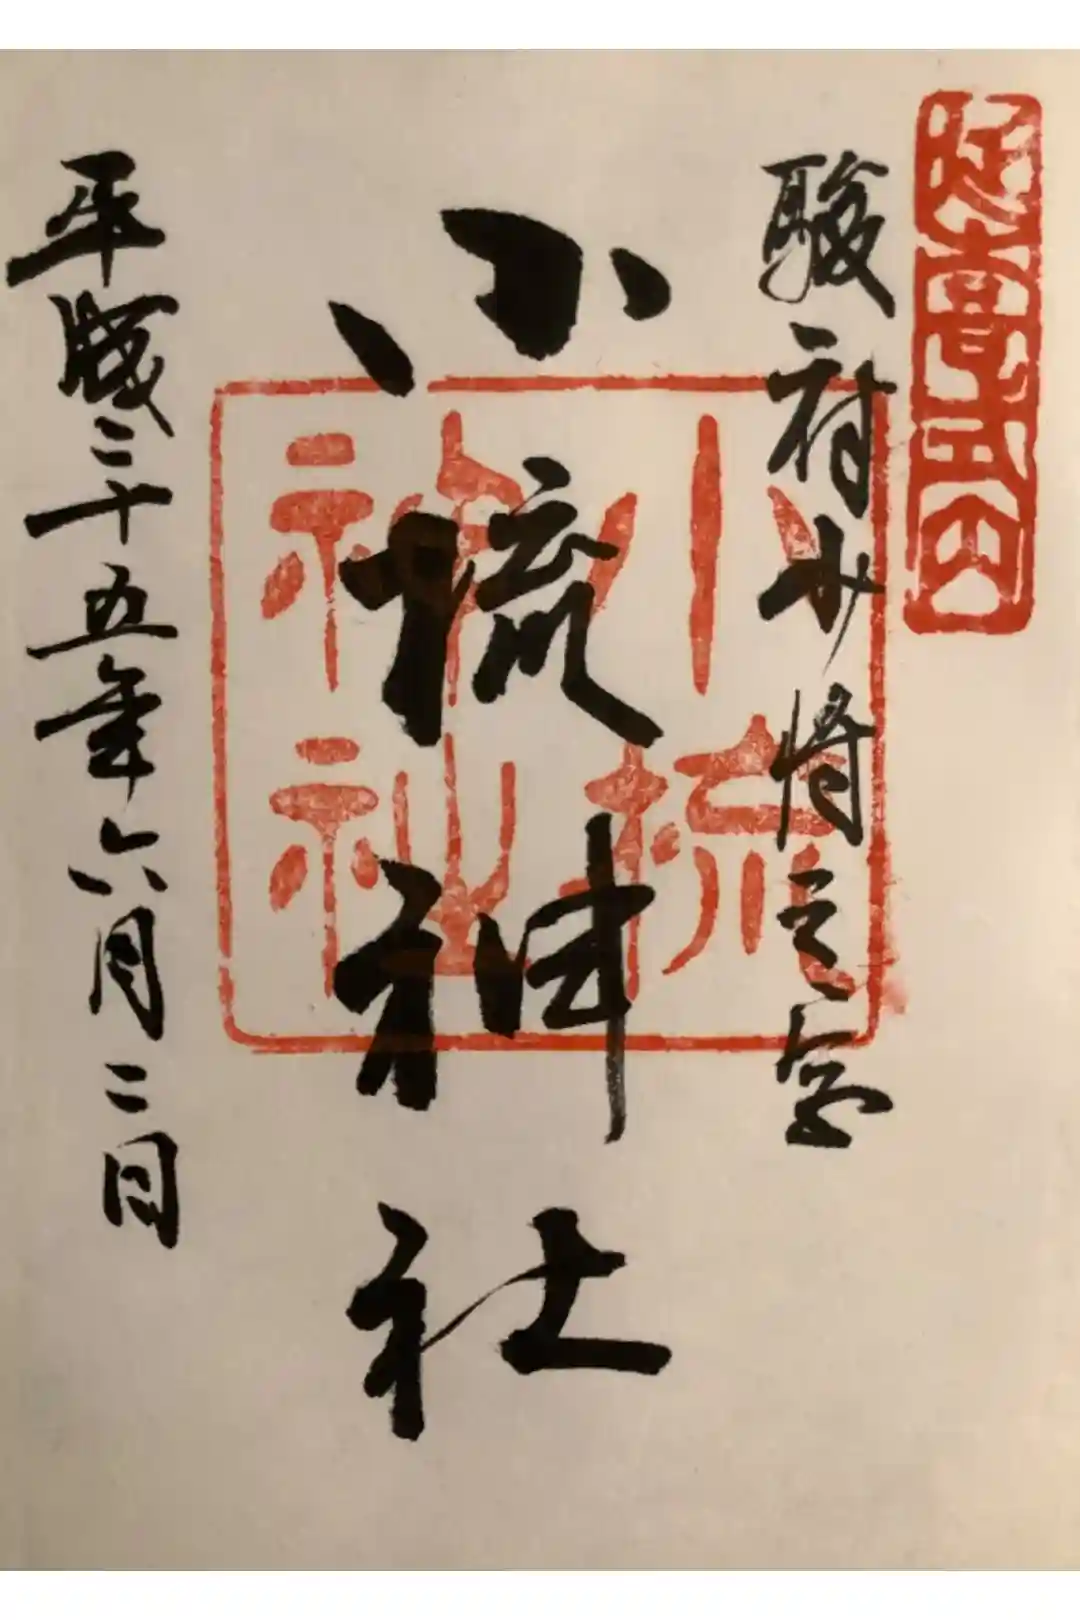 延喜式内
駿府少将之宮
小梳神社
小梳
神社
平成二十五年六月二日